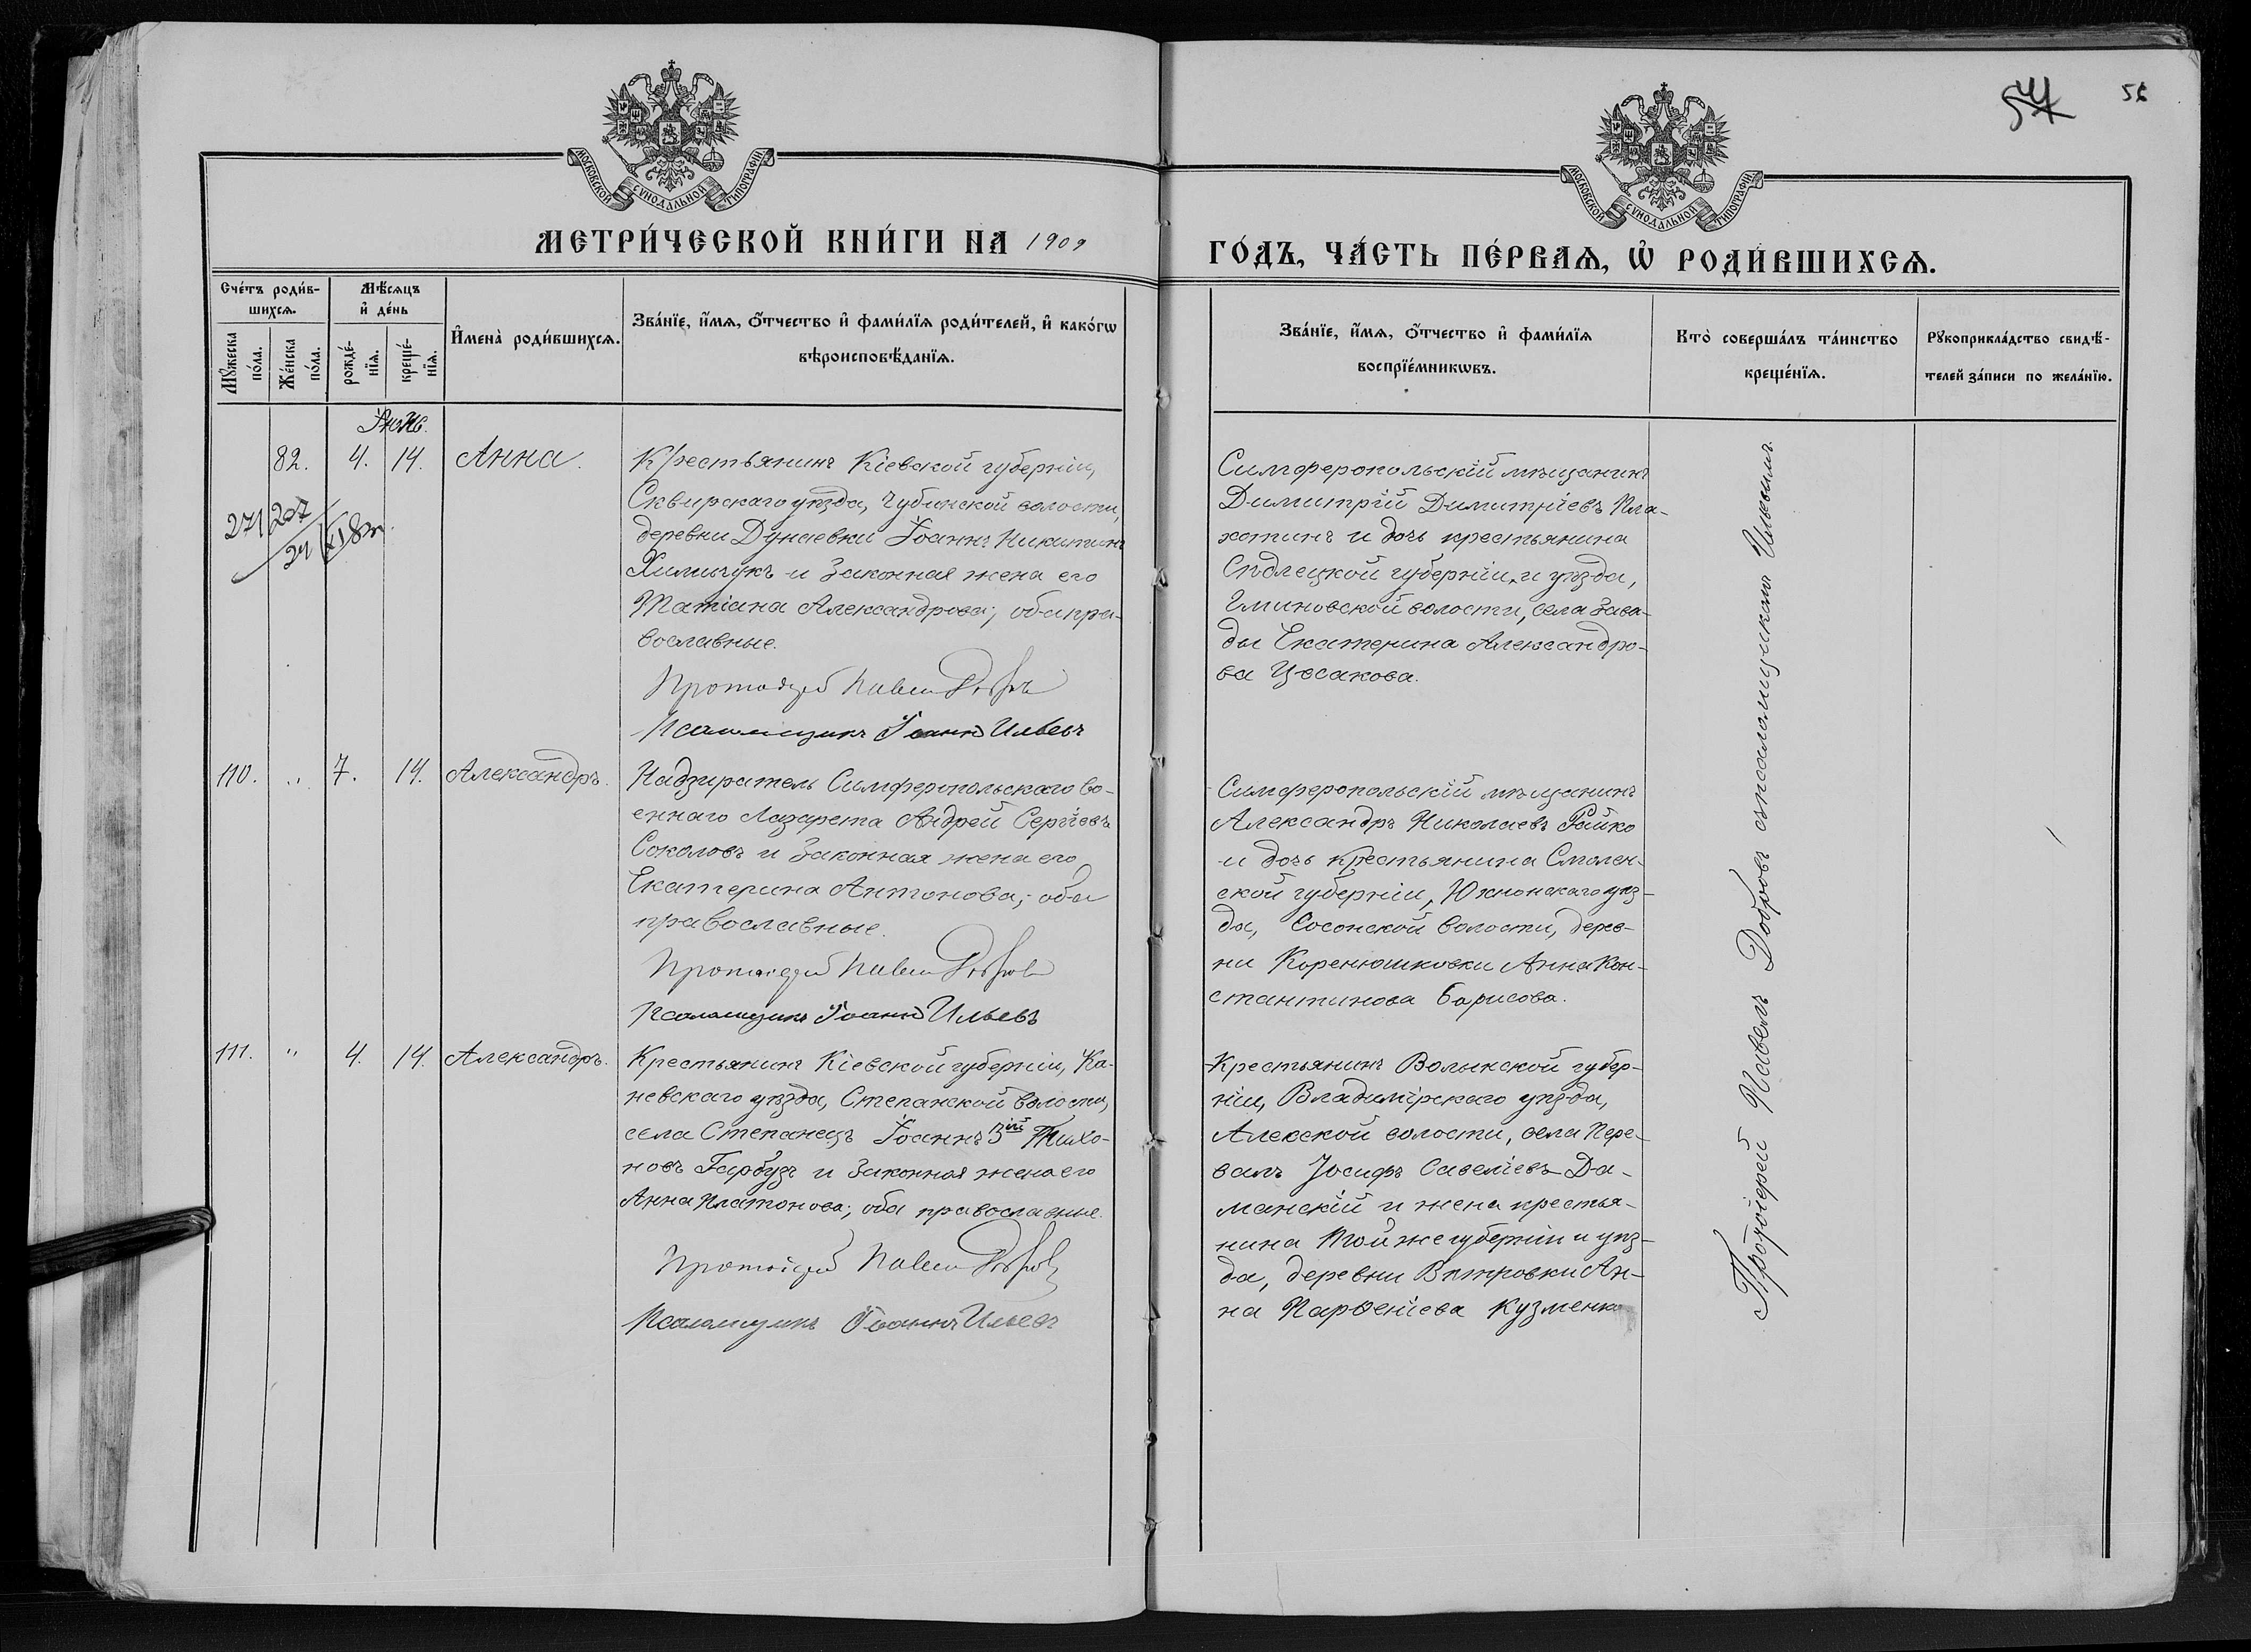 54
56
МОСКОВСКОЙ СУНОДАЛЬНОЙ ТИПОГРАФІИ
МОСКОВСКОЙ СУНОДАЛЬНОЙ ТИПОГРАФІИ
МЕТРИ́ЧЕСКОЙ КНИ́ГИ НА 1909
ГО́ДЪ, ЧА́СТЬ ПЕ́РВАѦ, Ѡ҆ РОДИ́ВШИХСѦ.
Сче́тъ роди́в-
шихсѧ.
Мꙋжеска по́ла.
Же́нска по́ла.
Мѣ́сѧцъ
и҆ де́нь
рожде́-
нїѧ.
креще́-
нїѧ.
И҆мена̀ роди́вшихсѧ.
Зва́нїе, и҆́мѧ, ѻ҆́тчество и҆ фами́лїѧ роди́телей, и҆ како́гѡ
вѣроисповѣ́данїѧ.
Зва́нїе, и҆́мѧ, ѻ҆́тчество и҆ фами́лїѧ
воспрїе́мникѡвъ.
Кто̀ соверша́лъ та́инство
креще́нїѧ.
Рꙋкоприкла́дство свидѣ́-
телей за́писи по жела́нїю.
82. 4. 14. Анна.
271 207
24
Крестьянинъ Кіевской губерніи,
Сквирскаго уѣзда, Чубинской волости,
деревни Дунаевки Іоаннъ Никитинъ
Химичукъ и законная жена его
Татіана Александрова; оба пра-
вославные.
Протоіерей Павелъ Добровъ
Псаломщикъ Іоаннъ Ильевъ
Симферопольскій мѣщанинъ
Димитрій Димитріевъ Пла-
хотинъ и дочь крестьянина
Сѣдлецкой губерніи и уѣзда,
волости, села Заво-
ды Екатерина Александро-
ва
110. " 7. 14. Александръ.
Надзиратель Симферопольскаго во-
еннаго Лазарета Андрей Сергіевъ
Соколовъ и законная жена его
Екатерина Антонова; оба
православные.
Протоіерей Павелъ Добровъ
Псаломщикъ Іоаннъ Ильевъ
Симферопольскій мѣщанинъ
Александръ Николаевъ Райко
и дочь крестьянина Смолен-
ской губерніи, Юхновскаго уѣз-
да, Сосонской волости, дерев-
ни Коренюшковки Анна Кон-
стантинова Борисова.
111. " 4. 14. Александръ.
Крестьянинъ Кіевской губерніи, Ка-
невскаго уѣзда, Степанской волости,
села Степанецъ Іоаннъ 3ій Тихо-
новъ Гарбузъ и законная жена его
Анна Платонова; оба православные.
Протоіерей Павелъ Добровъ
Псаломщикъ Іоаннъ Ильевъ
Крестьянинъ Волынской губер-
ніи, Владимірскаго уѣзда,
волости, села Пере-
валъ Іосифъ Савеліевъ Да-
манскій и жена крестья-
нина той же губерніи и уѣз-
да, деревни Вѣтровки Ан-
на Парѳеніева Кузменко
Протоіерей Павелъ Добровъ съ псаломщикомъ Ильевымъ.